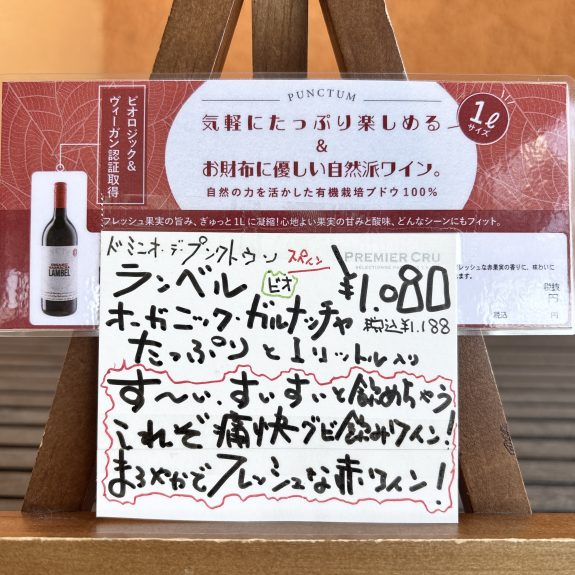 PUNCTUM
気軽にたっぷり楽しめる
&
お財布に優しい自然派ワイン。
自然の力を活かした有機栽培ブドウ100%
1ℓ
サイズ
ビオロジック&
ヴィーガン認証取得
フレッシュ果実の旨み、ぎゅっと1Lに凝縮!心地よい果実の甘みと酸味、どんなシーンにもフィット。
LAMBEL
PREMIER CRU
ドミニオ・デ・プンクトゥン
スペイン
ランベル
ビオ
¥1.080
オーガニック・ガルナッチャ
税込¥1.188
たっぷりと1リットル入り
す〜い、すいすいと飲めちゃう
これぞ痛快グビ飲みワイン!
まろやかでフレッシュな赤ワイン!
レッシュな赤果実の香りに、味わいに
税抜
円
税込
円